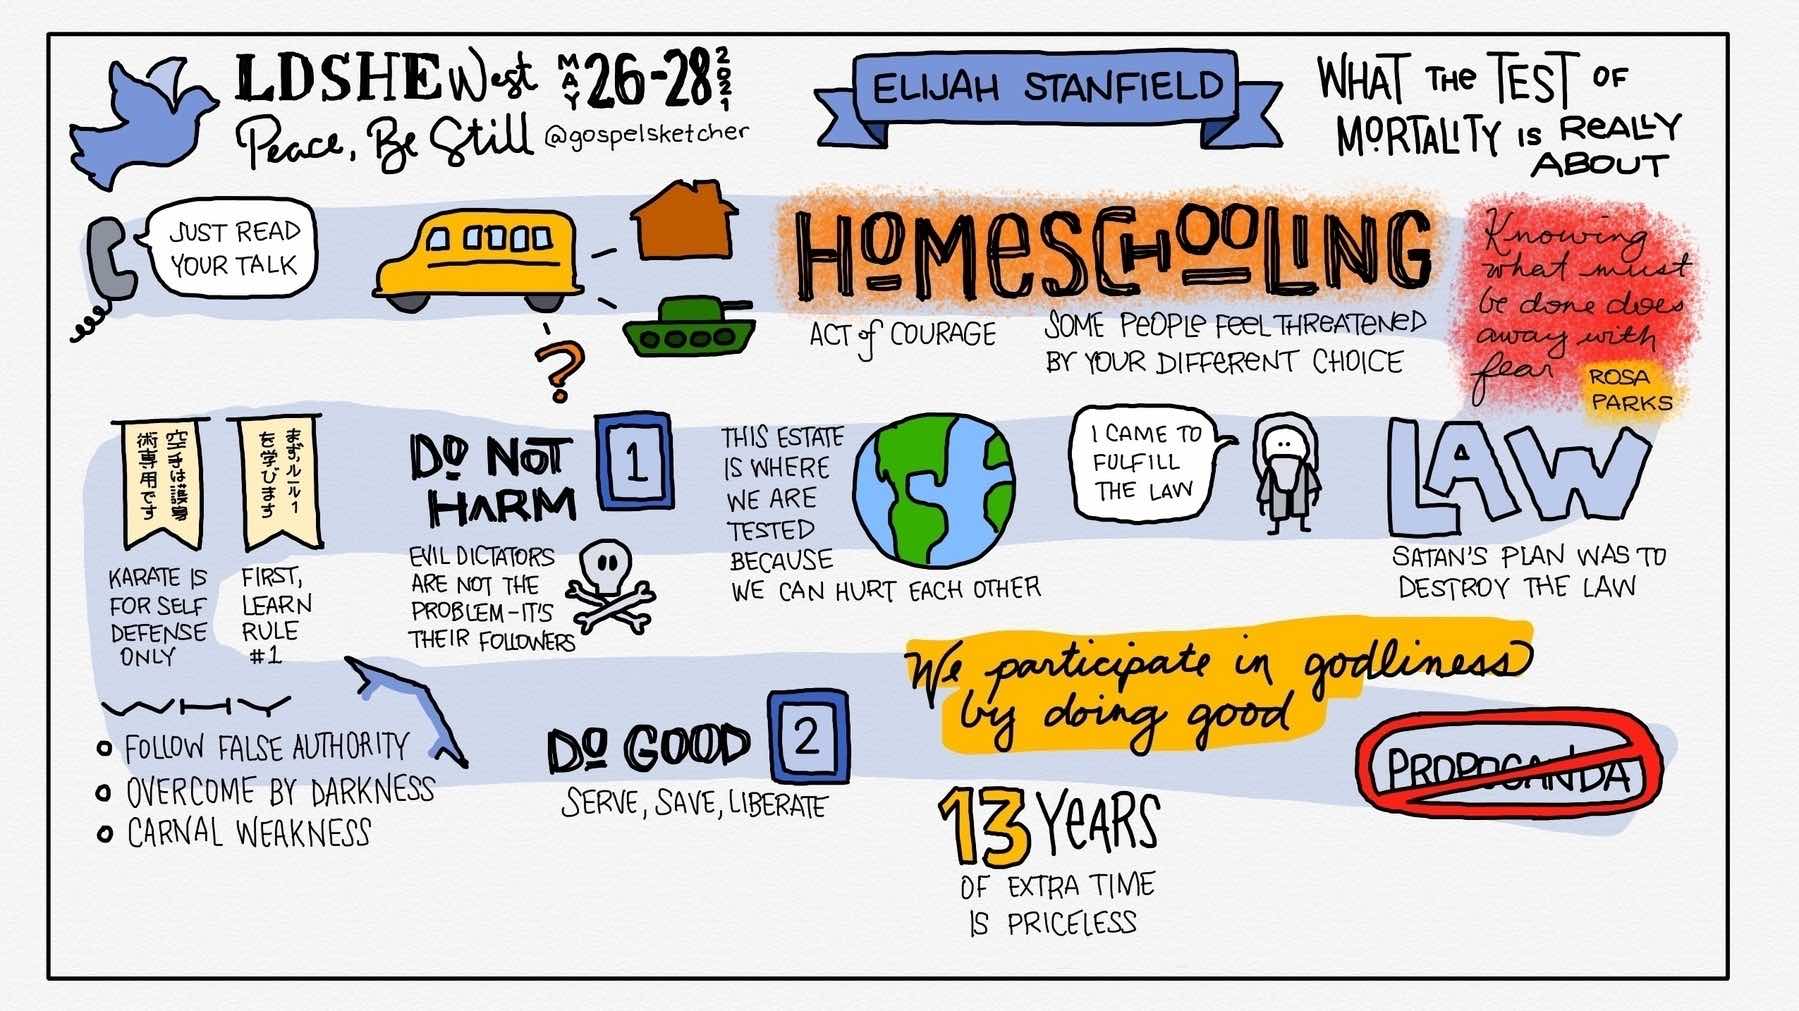 LDSHE West MAY 26-28 2021
Peace, Be Still @gospelsketcher
ELIJAH STANFIELD
WHAT THE TEST OF
MORTALITY IS REALLY
ABOUT
JUST READ
YOUR TALK
?
HOMESCHOOLING
ACT of COURAGE
SOME PEOPLE FEEL THREATENED
BY YOUR DIFFERENT CHOICE
Knowing
what must
be done does
away with
fear
ROSA
PARKS
空手は護身
術専用です
まず、ルール1
を学びます
KARATE IS
FOR SELF
DEFENSE
ONLY
FIRST,
LEARN
RULE
#1
DO NOT
HARM
1
EVIL DICTATORS
ARE NOT THE
PROBLEM-IT'S
THEIR FOLLOWERS
THIS ESTATE
IS WHERE
WE ARE
TESTED
BECAUSE
WE CAN HURT EACH OTHER
I CAME TO
FULFILL
THE LAW
LAW
SATAN'S PLAN WAS TO
DESTROY THE LAW
WHY
FOLLOW FALSE AUTHORITY
OVERCOME BY DARKNESS
CARNAL WEAKNESS
DO GOOD
2
SERVE, SAVE, LIBERATE
We participate in godliness
by doing good
13 YEARS
OF EXTRA TIME
IS PRICELESS
PROPOGANDA